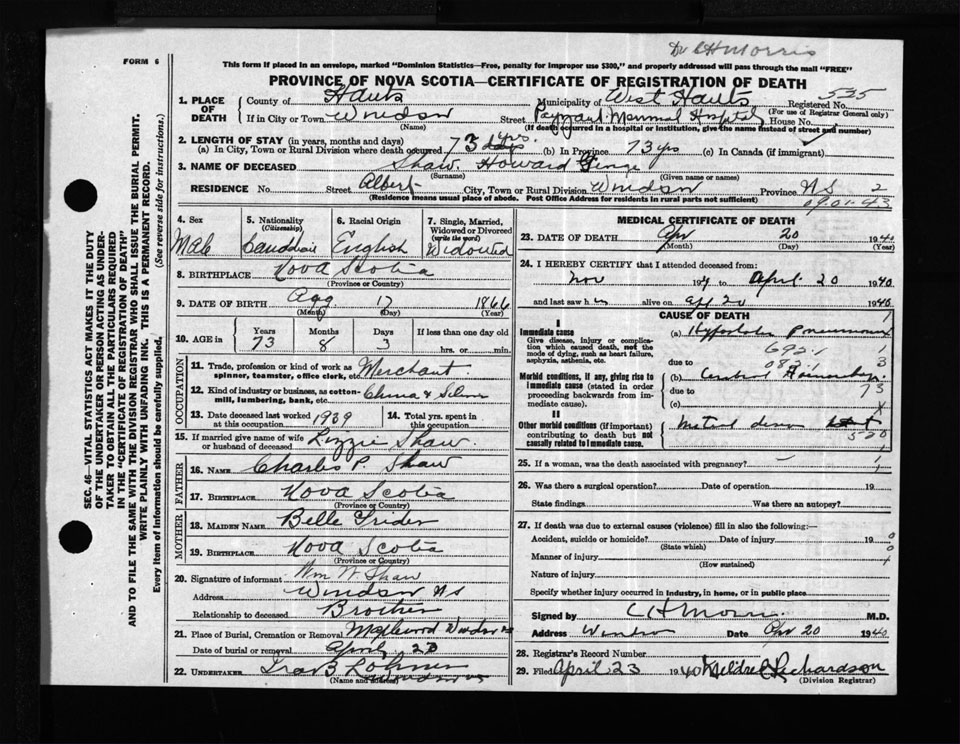 Dr CH Morris
FORM 6
This form if placed in an envelope, marked "Dominion Statistics—Free, penalty for improper use $300," and properly addressed will pass through the mail "FREE"
PROVINCE OF NOVA SCOTIA—CERTIFICATE OF REGISTRATION OF DEATH
SEC. 46—VITAL STATISTICS ACT MAKES IT THE DUTY
OF THE UNDERTAKER OR PERSON ACTING AS UNDER-
TAKER TO OBTAIN ALL THE PARTICULARS REQUIRED
IN THE "CERTIFICATE OF REGISTRATION OF DEATH"
AND TO FILE THE SAME WITH THE DIVISION REGISTRAR WHO SHALL ISSUE THE BURIAL PERMIT.
WRITE PLAINLY WITH UNFADING INK. THIS IS A PERMANENT RECORD.
Every item of information should be carefully supplied. (See reverse side for instructions.)
1. PLACE OF DEATH County of Hants Municipality of West Hants Registered No. 525
(For use of Registrar General only)
If in City or Town Windsor Street Payzant Memorial Hospital House No.
(Name) (If death occurred in a hospital or institution, give the name instead of street and number)
2. LENGTH OF STAY (in years, months and days)
(a) In City, Town or Rural Division where death occurred 73 yrs (b) In Province 73 yrs (c) In Canada (if immigrant)
3. NAME OF DECEASED Shaw Howard
(Surname) (Given name or names)
RESIDENCE No. Street Albert City, Town or Rural Division Windsor Province NS 2
(Residence means usual place of abode. Post Office Address for residents in rural parts not sufficient) 0901-43
4. Sex Male
5. Nationality (Citizenship) Canadian
6. Racial Origin English
7. Single, Married, Widowed or Divorced (write the word) Widowed
8. BIRTHPLACE Nova Scotia
(Province or Country)
9. DATE OF BIRTH Aug 17 1866
(Month) (Day) (Year)
10. AGE in Years 73 Months 8 Days 3 If less than one day old hrs. or min.
OCCUPATION
11. Trade, profession or kind of work as spinner, teamster, office clerk, etc. Merchant
12. Kind of industry or business, as cotton-mill, lumbering, bank, etc. China & Silver
13. Date deceased last worked at this occupation 1939 14. Total yrs. spent in this occupation
15. If married give name of wife or husband of deceased Lizzie Shaw
FATHER
16. NAME Charles P Shaw
17. BIRTHPLACE Nova Scotia
(Province or Country)
MOTHER
18. MAIDEN NAME Belle
19. BIRTHPLACE Nova Scotia
(Province or Country)
20. Signature of informant Wm W Shaw
Address Windsor NS
Relationship to deceased Brother
21. Place of Burial, Cremation or Removal Maplewood Windsor NS
Date of burial or removal April 23
22. UNDERTAKER Ira B Lohnes
(Name and address) Windsor NS
MEDICAL CERTIFICATE OF DEATH
23. DATE OF DEATH Apr 20 1940
(Month) (Day) (Year)
24. I HEREBY CERTIFY that I attended deceased from:
Nov 19 to April 20 1940
and last saw him alive on Apl 20 1940
CAUSE OF DEATH
I
Immediate cause
Give disease, injury or complication which caused death, not the mode of dying, such as heart failure, asphyxia, asthenia, etc.
(a) Hypostatic Pneumonia
due to
Morbid conditions, if any, giving rise to immediate cause (stated in order proceeding backwards from immediate cause).
(b) Cerebral Hemorrhage
due to
(c)
II
Other morbid conditions (if important) contributing to death but not causally related to immediate cause.
Mitral
520
25. If a woman, was the death associated with pregnancy?
26. Was there a surgical operation? Date of operation 19
State findings Was there an autopsy?
27. If death was due to external causes (violence) fill in also the following:
Accident, suicide or homicide? Date of injury 19
(State which)
Manner of injury
(How sustained)
Nature of injury
Specify whether injury occurred in industry, in home, or in public place
Signed by C H Morris M.D.
Address Windsor Date Apr 20 1940
28. Registrar's Record Number
29. Filed April 23 1940 Mildred Richardson
(Division Registrar)